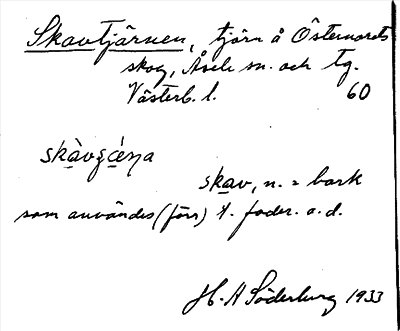 Skavtjärnen, tjärn å Östernorets
skog, Åsele sn. och tg.
Västerb. l. 60
skav, n. = bark
som användes (förr) t. foder. o. d.
H. A Söderburg 1933